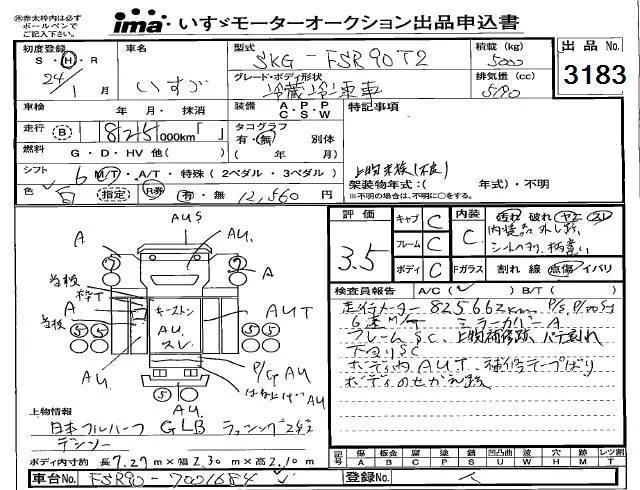 ※赤太枠内は必ず
ボールペンで
ご記入下さい。
ima いすゞモーターオークション出品申込書
初度登録
S・H・R
24/1月
車名
いすゞ
型式
SKG-FSR90T2
グレード・ボディ形状
冷蔵冷凍車
積載 (kg)
5000
排気量 (cc)
5190
出品 No.
3183
車検 年・月・抹消
装備 A・P・P C・S・W
特記事項
走行 B 825 000km「 」
タコグラフ
有・無 別体
( 年 月)
燃料 G・D・HV 他( )
シフト 6 M/T・A/T・特殊(2ペダル・3ペダル)
色 白 (指定) R券 有・無 12,560円
架装物年式:( 年式)・不明
※不明の場合は、不明に○をする。
評価
3.5
キャブ C
フレーム C
ボディ C
内装 C
Fガラス
汚れ 破れ ヤニ スレ
割れ 線 点傷 イバリ
検査員報告 A/C( ) B/T( )
走行メーター 825662km P/S, P/W
6速M/T ミラーカバーA
フレームS.C、上物補修跡、パテ割れ
下回りSC
ボディ内AUT、補修テープばり
AUS
A
AU.
A
荷枠T
キーストン
AU.
スレ
AUT
A
AU.
P/G AU
AU.
上物情報
日本フルハーフ GLB ラッシング2段
デンソー
ボディ内寸約 長7.27m×幅2.30m×高2.10m
記号 傷 A 板金 B 腐 C 塗 P 錆 S 凹凸曲 U 波 W 穴 H 跡 M レツ割 T
車台No. FSR90-7001684
登録No.